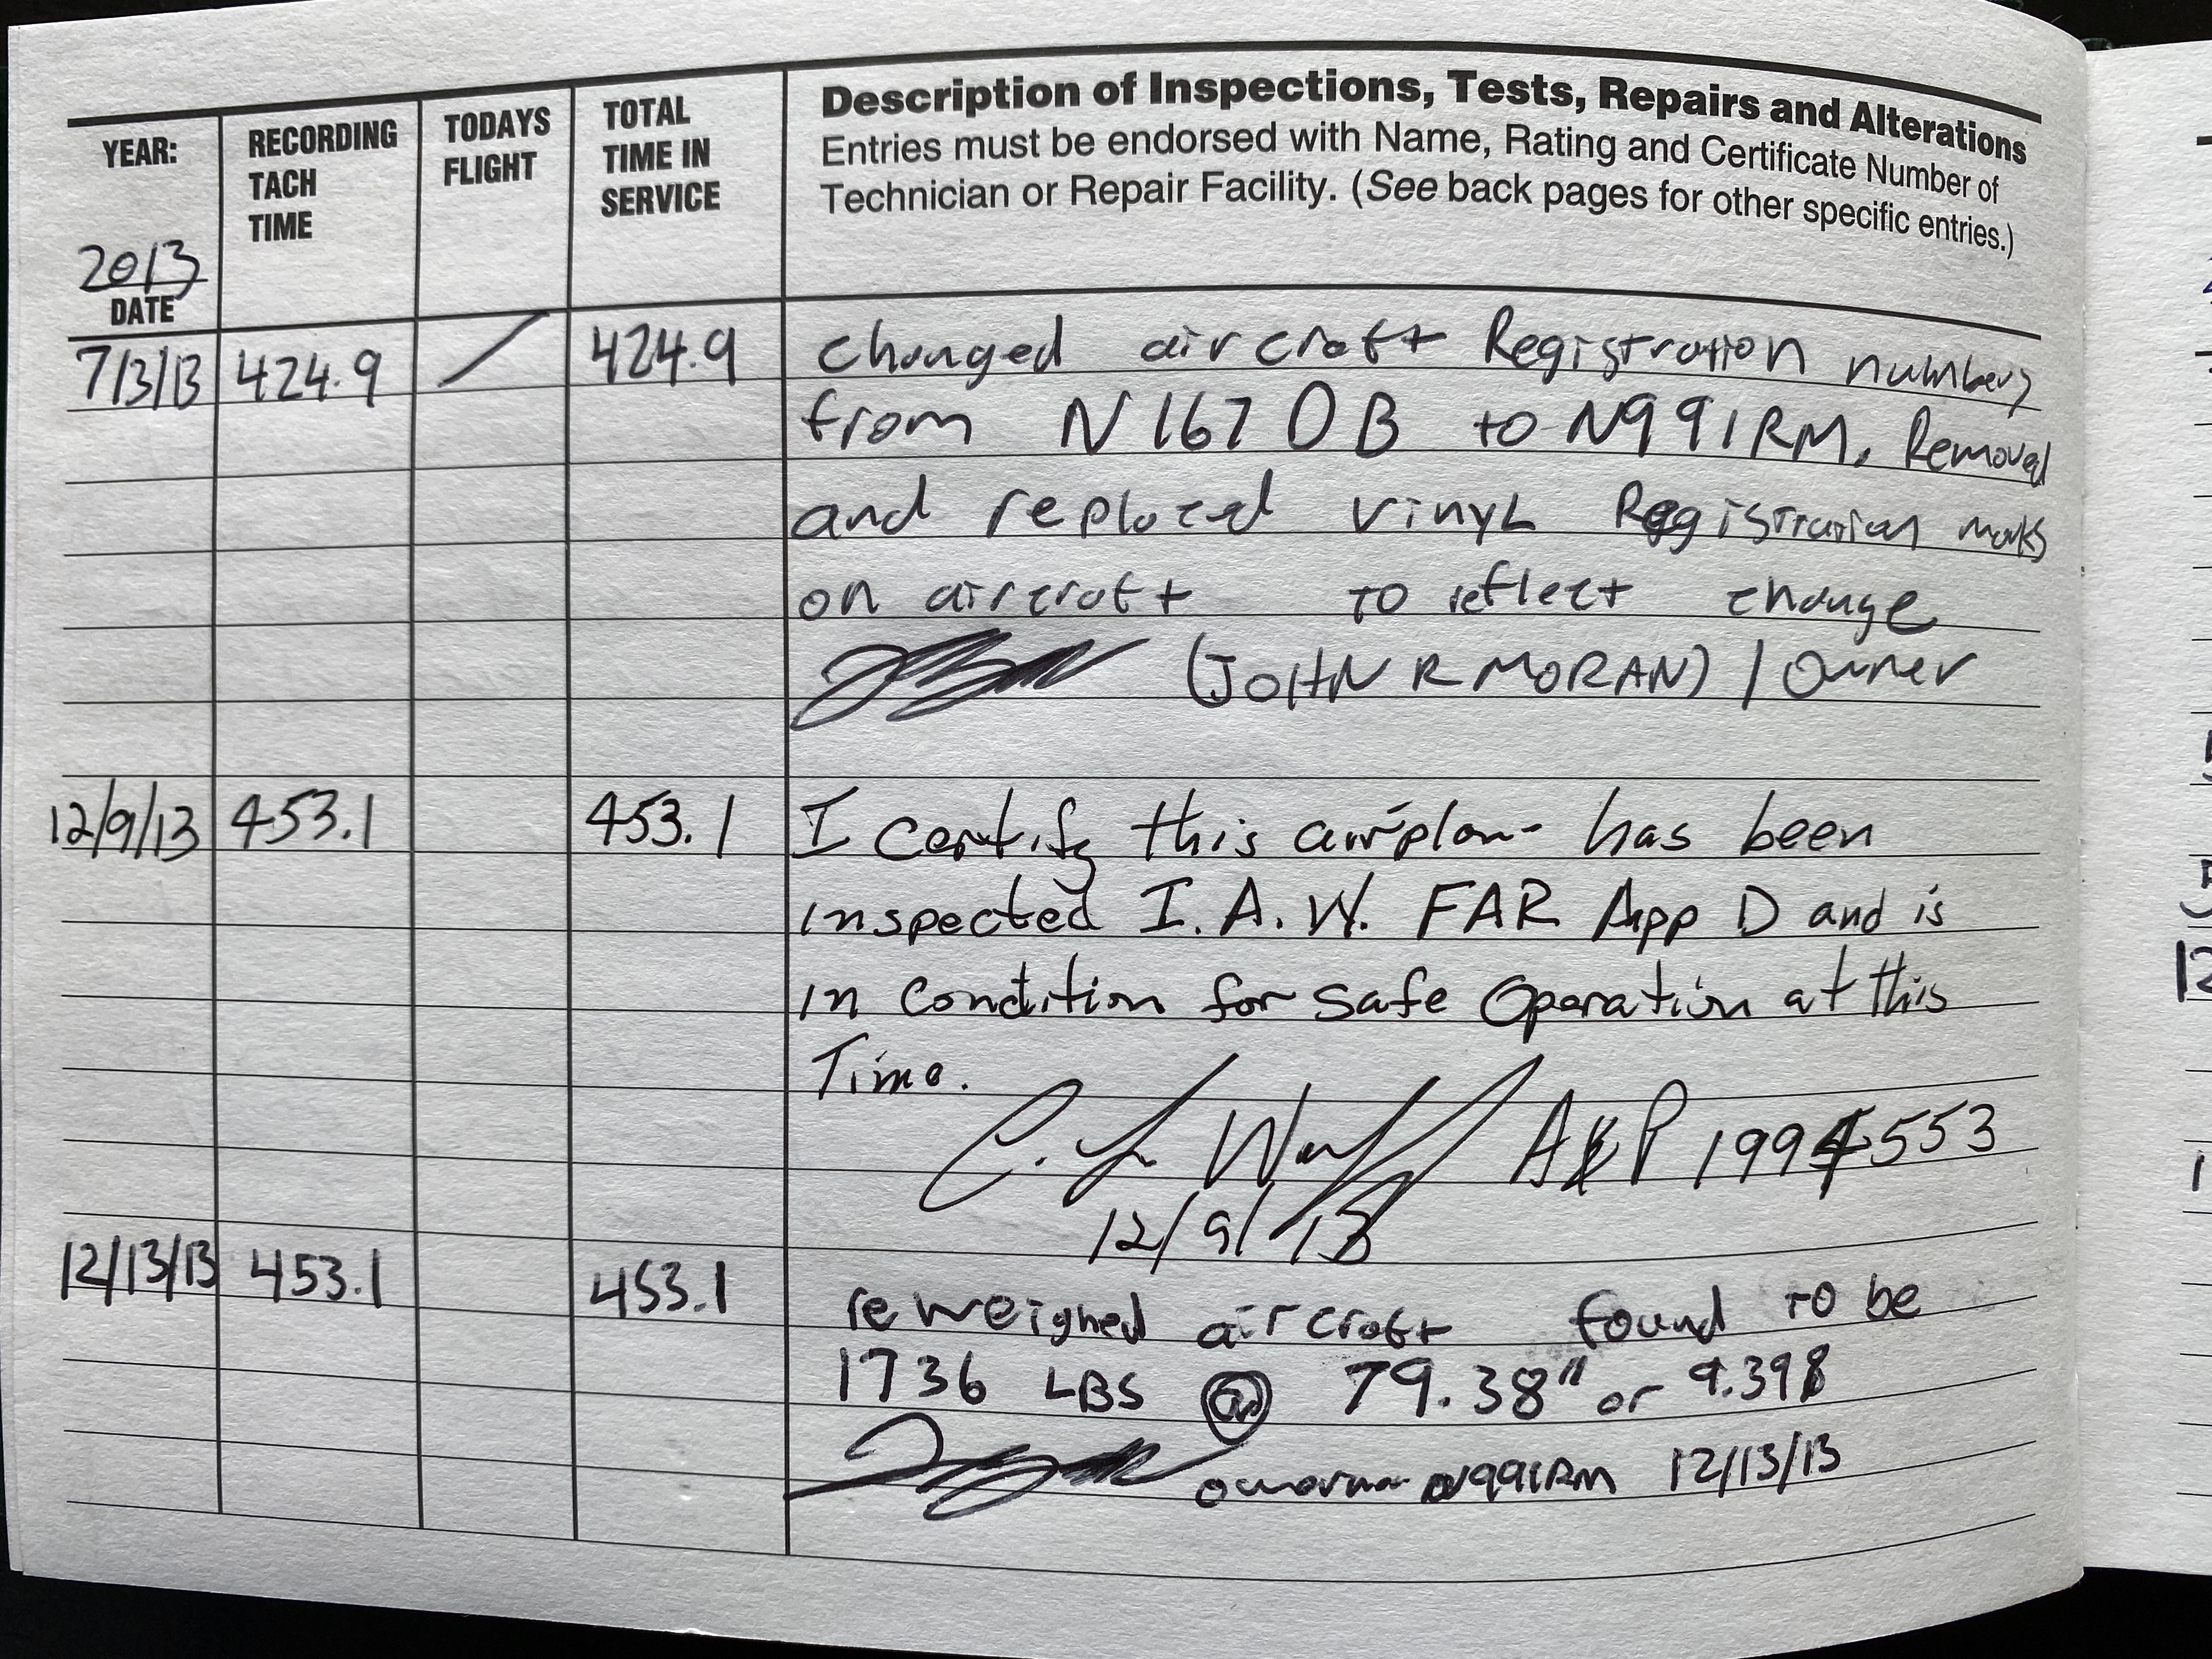 YEAR: RECORDING TACH TIME TODAYS FLIGHT TOTAL TIME IN SERVICE
Description of Inspections, Tests, Repairs and Alterations
Entries must be endorsed with Name, Rating and Certificate Number of
Technician or Repair Facility. (See back pages for other specific entries.)
2013
DATE
7/3/13 424.9 / 424.9 changed aircraft Registration numbers
from N1670B to N991RM. Removal
and replaced vinyl Registration marks
on aircraft to reflect change
(JOHN R MORAN) / Owner
12/9/13 453.1 453.1 I certify this airplane has been
inspected I.A.W. FAR App D and is
in condition for safe operation at this
Time.
A&P 1994553
12/9/13
12/13/13 453.1 453.1 reweighed aircraft found to be
1736 LBS @ 79.38" or 9.398
N991RM 12/13/13